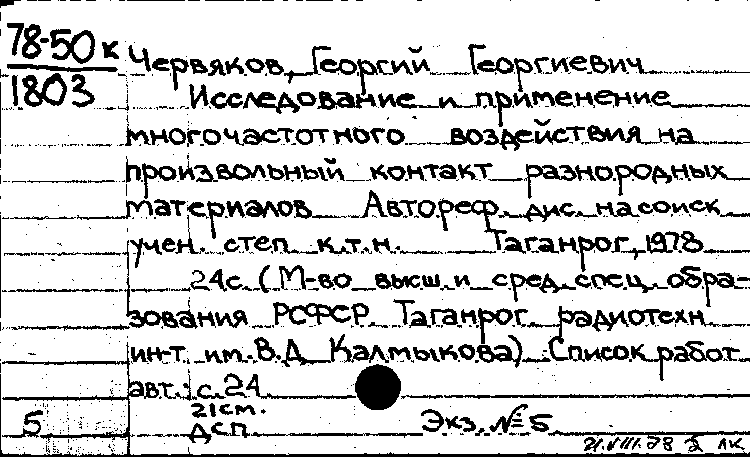 78-50к
1803
Червяков, Георгий Георгиевич
Исследование и применение
многочастотного воздействия на
произвольный контакт разнородных
материалов Автореф. дис. на соиск
учен. степ к.т.н. Таганрог, 1978
24с. (М-во высш. и сред. спец. обра-
зования РСФСР. Таганрог. радиотехн
ин-т. им. В.Д Калмыкова) Список работ
авт.: с. 24
21см.
ДСП.
Экз. № 5
5
21.VIII.78 ЛК